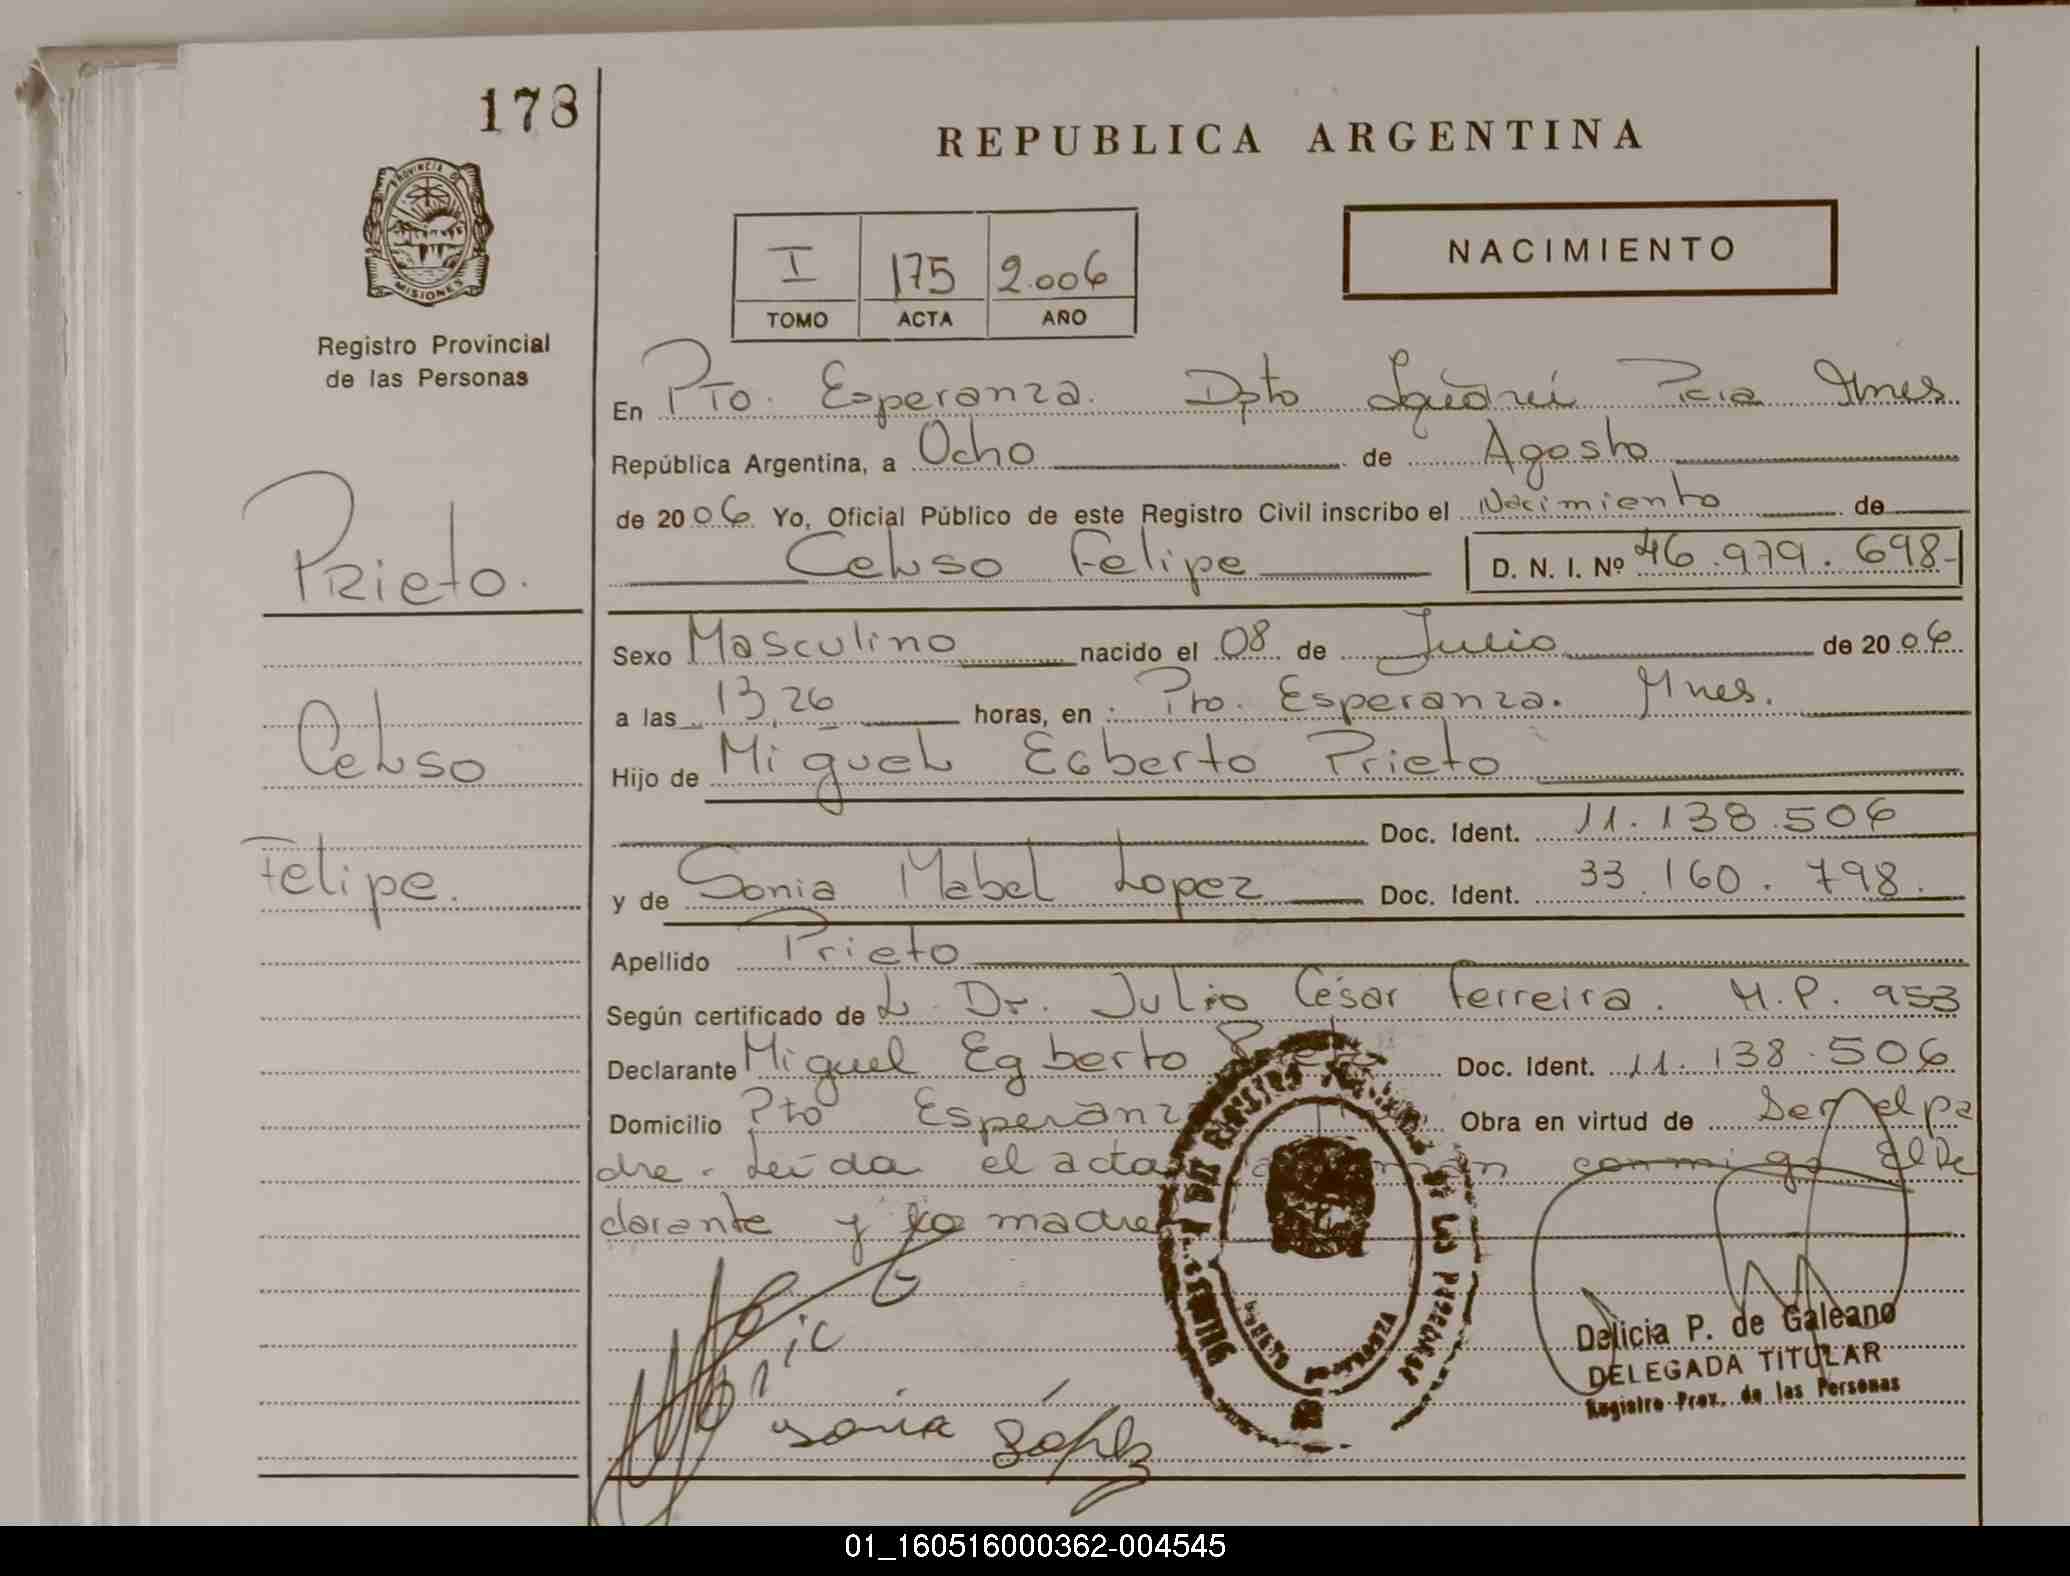 178
REPUBLICA ARGENTINA
PROVINCIA DE
MISIONES
Registro Provincial
de las Personas
NACIMIENTO
I 175 2.006
TOMO ACTA AÑO
En Pto. Esperanza. Dpto Iguazú Pcia Mnes
República Argentina, a Ocho de Agosto
de 2006 Yo, Oficial Público de este Registro Civil inscribo el Nacimiento de
Celso Felipe D. N. I. Nº 46.979.698-
Prieto.
Sexo Masculino nacido el 08 de Julio de 2006
a las 13,26 horas, en Pto. Esperanza. Mnes.
Celso
Hijo de Miguel Egberto Prieto
Doc. Ident. 11.138.506
Felipe.
y de Sonia Mabel Lopez Doc. Ident. 33.160.798.
Apellido Prieto
Según certificado de L Dr. Julio César Ferreira. M.P. 953
Declarante Miguel Egberto Prieto Doc. Ident. 11.138.506
Domicilio Pto Esperanza Obra en virtud de Ser el pa
dre. Leída el acta conmigo El De
clarante y la madre
Delicia P. de Galeano
DELEGADA TITULAR
Registro Prov. de las Personas
Sonia López
01_160516000362-004545